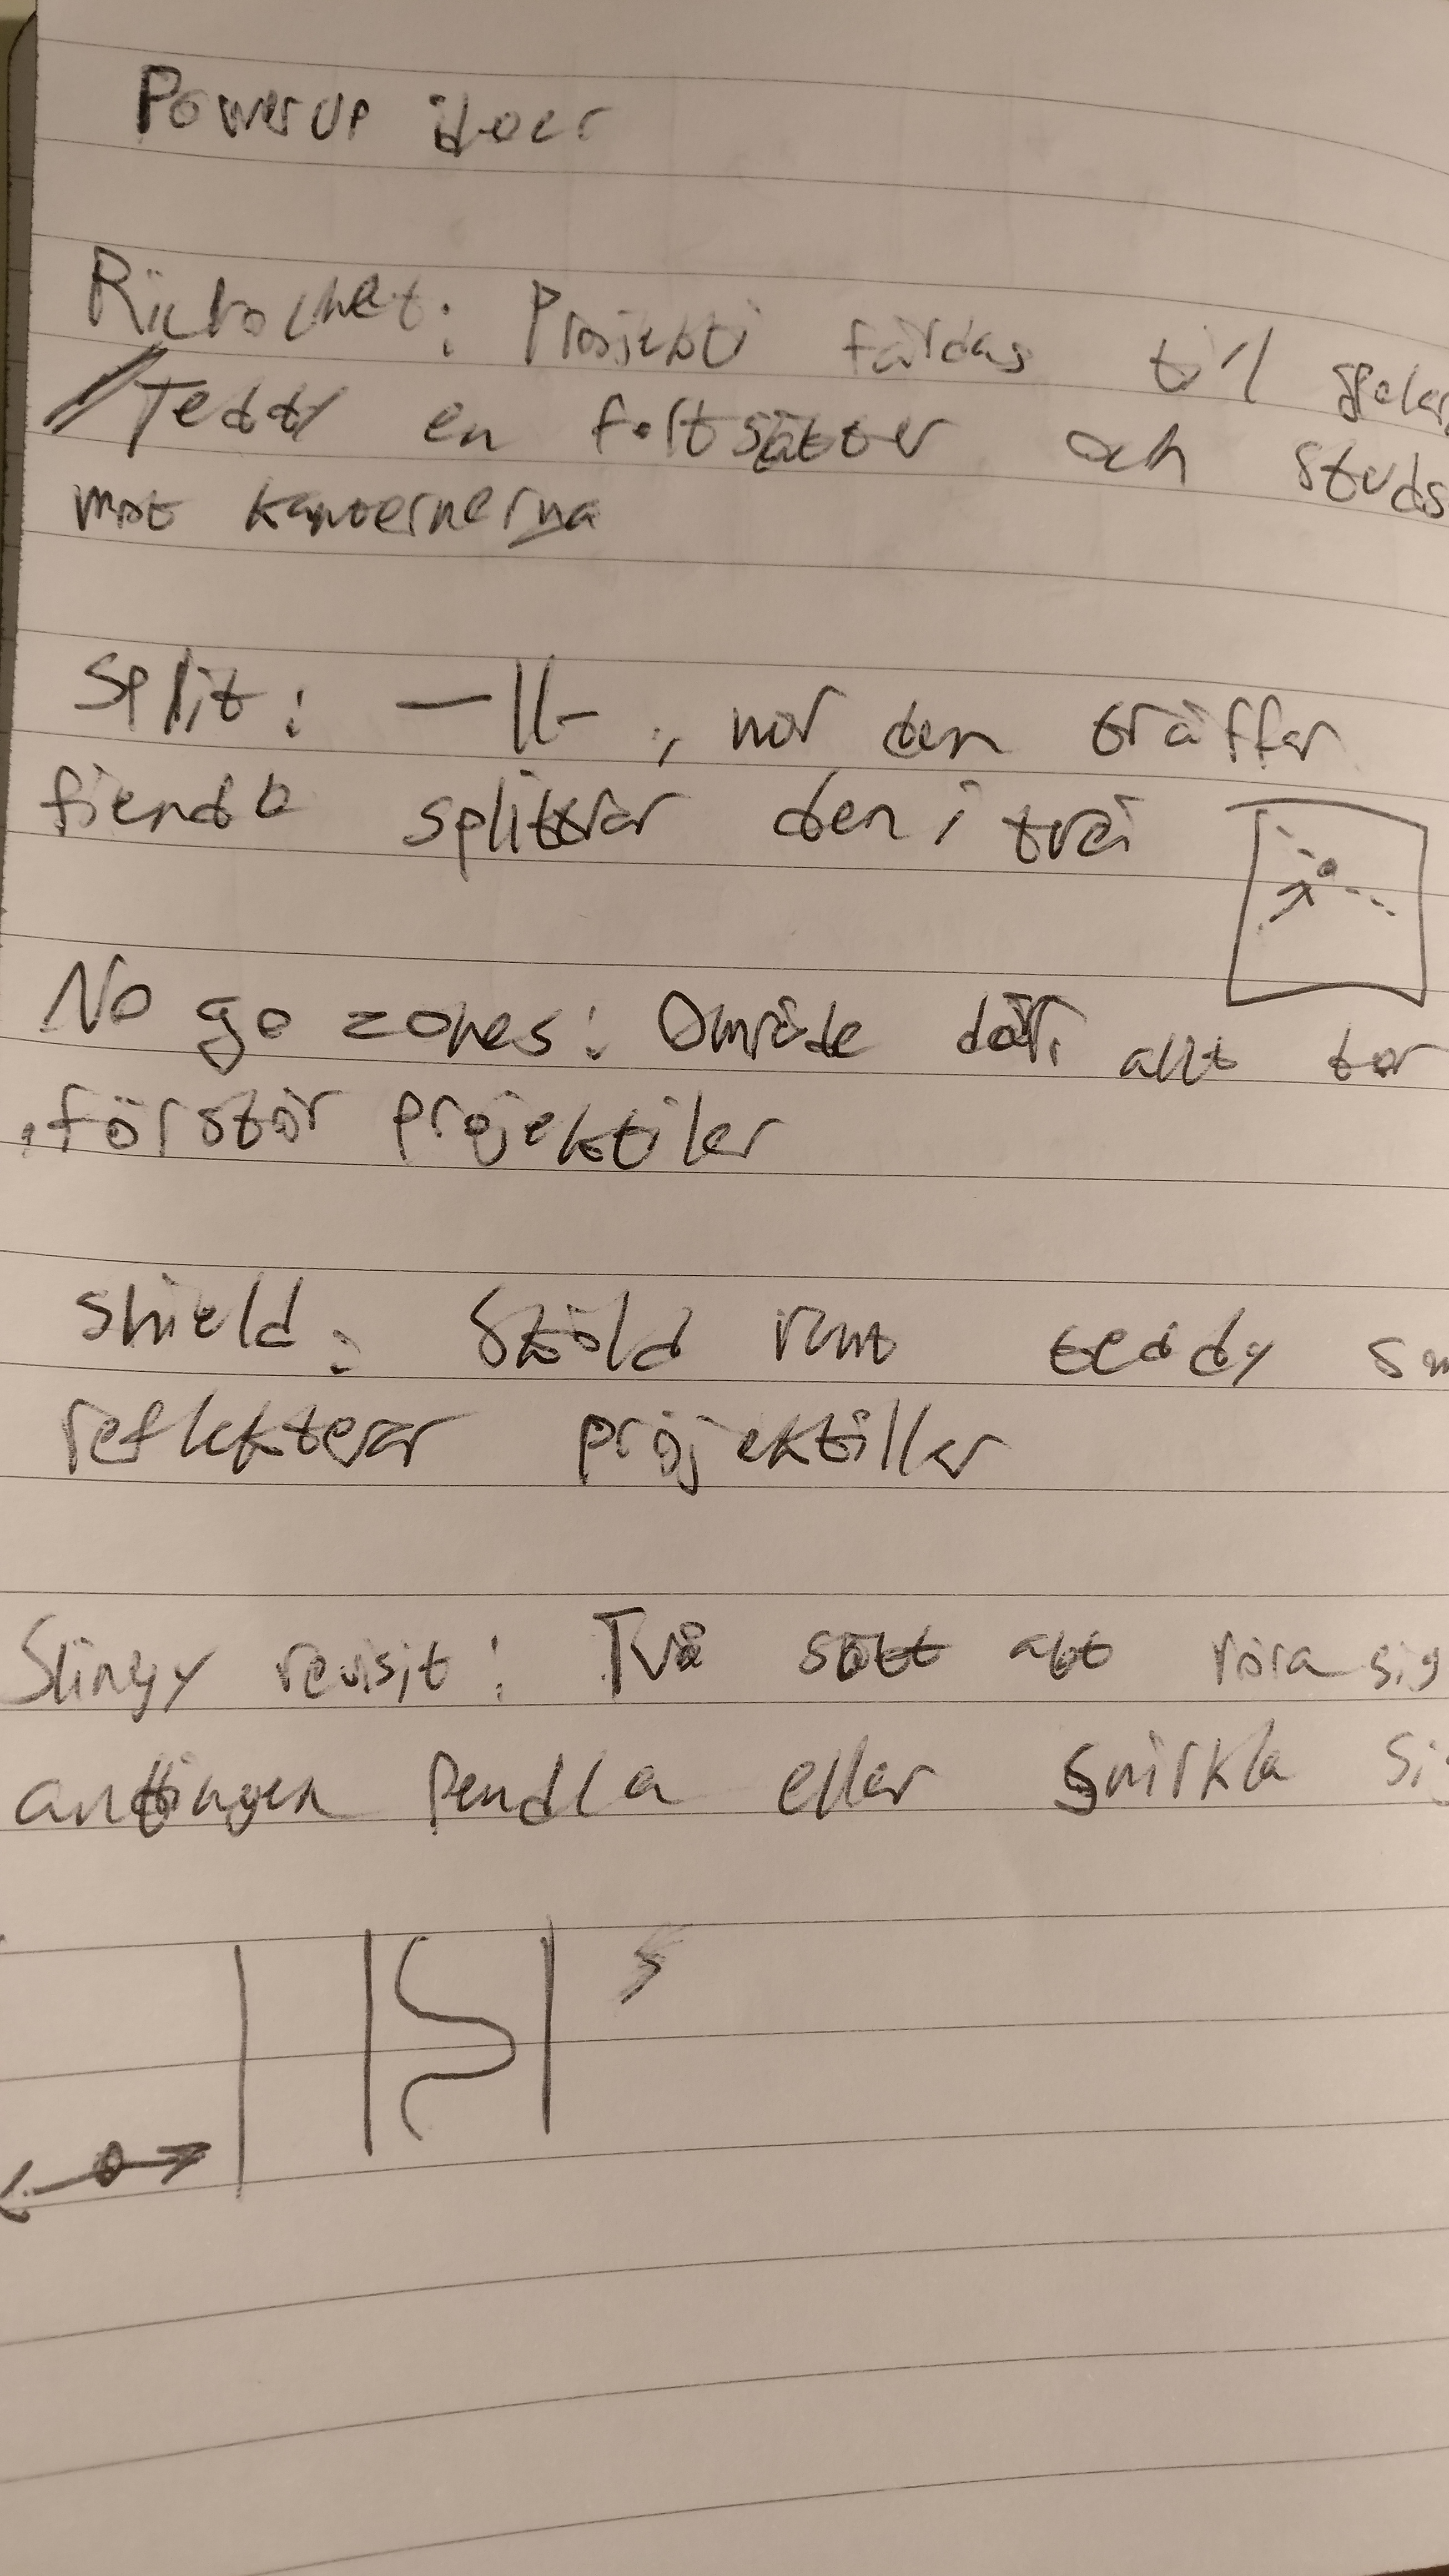 Powerup ideer
Rickochet: Projekti färdas till
Teddy en och studs
mot kanternerna
Split: —||— , när den träffar
fiende splittrar den i två
No go zones: Område där allt tar
förstör projektiler
Shield: Sköld runt teddy sm
reflekterar projektiller
Slingy revisit: Två sätt att röra sig
antingen pendla eller snirkla sig